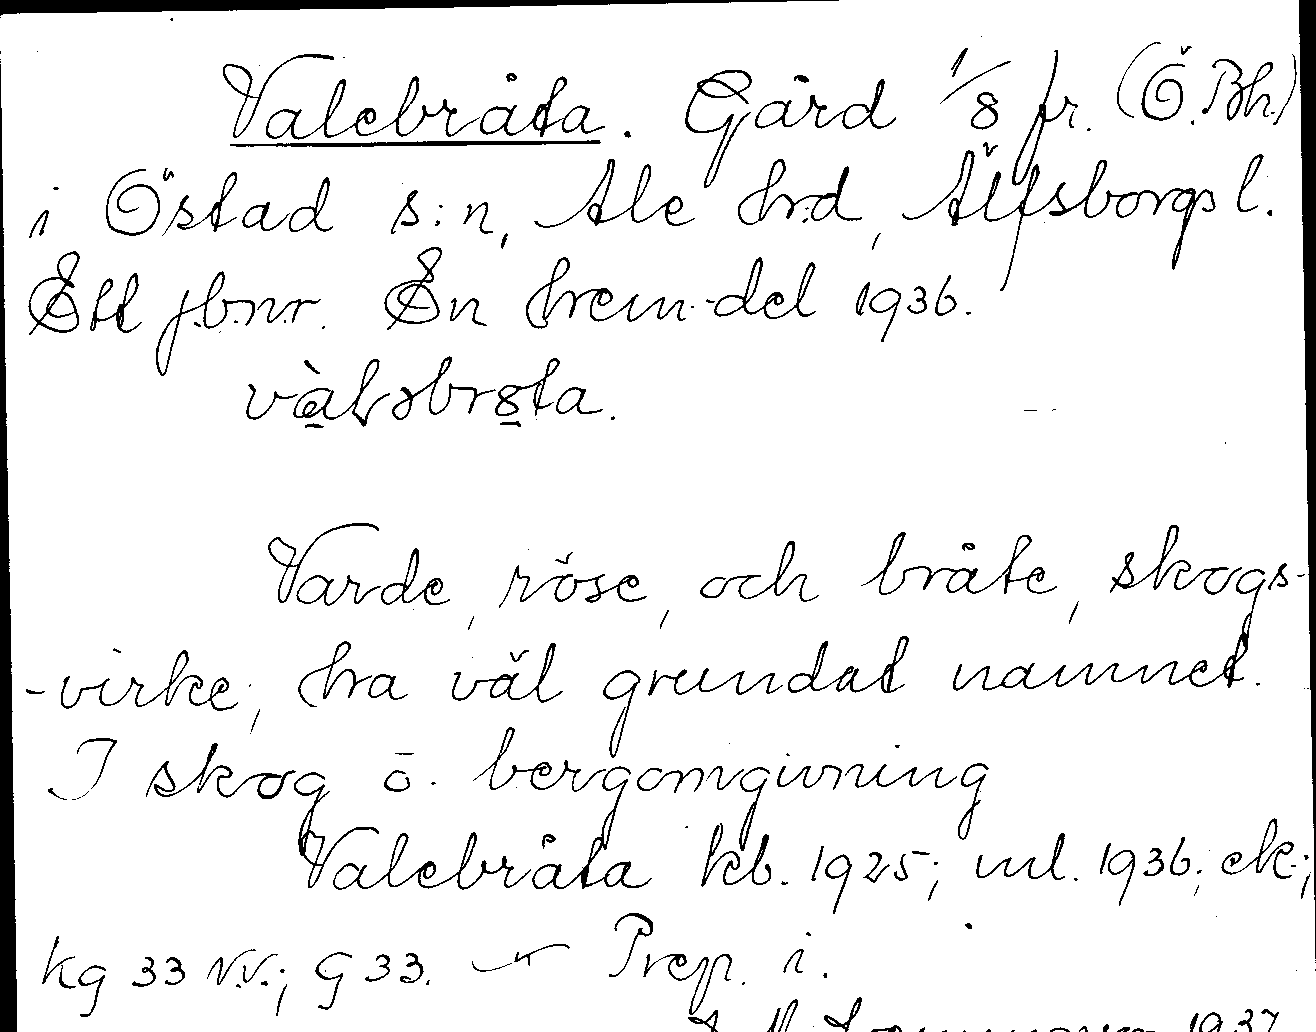 Valebråta. Gård 1/8 fr. (Ö.Bh.)
i Östad s:n, Ale hrd, Älfsborgs l.
Ett jbnr. En hem-del 1936.
Varde, röse, och bråte, skogs-
-virke, ha väl grundat namnet.
I skog o. bergomgivning
Valebråta kb. 1925; ml. 1936; ek.;
kg 33 N.V.; G 33. Prep. i.
1937